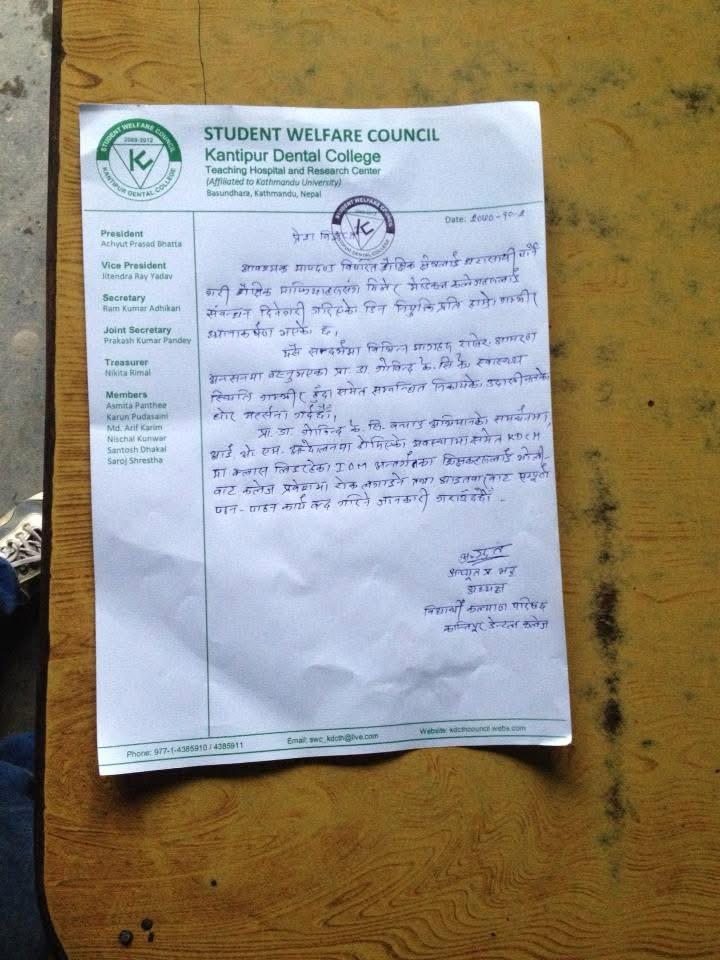 STUDENT WELFARE COUNCIL
2069-2012
KANTIPUR DENTAL COLLEGE
STUDENT WELFARE COUNCIL
Kantipur Dental College
Teaching Hospital and Research Center
(Affiliated to Kathmandu University)
Basundhara, Kathmandu, Nepal
STUDENT WELFARE COUNCIL
KANTIPUR DENTAL COLLEGE
Date:
President
Achyut Prasad Bhatta
Vice President
Jitendra Ray Yadav
Secretary
Ram Kumar Adhikari
Joint Secretary
Prakash Kumar Pandey
Treasurer
Nikita Rimal
Members
Asmita Panthee
Karun Pudasaini
Md. Arif Karim
Nischal Kunwar
Santosh Dhakal
Saroj Shrestha
प्रेस
आवश्यक मापदण्ड विपरित शैक्षिक
गरी शैक्षिक माफियाहरुसंग मिलेर मेडिकल कलेजहरुलाई
सम्बन्धन दिनेगरी गरिएको डिन नियुक्ति प्रति हाम्रो गम्भीर
ध्यानाकर्षण भएको छ।
यसै सन्दर्भमा विभिन्न मागहरु राखेर आमरण
अनसनमा बस्नुभएका प्रा. डा. गोविन्द के. सि. को स्वास्थ्य
स्थिति गम्भीर हुँदा समेत सम्बन्धित निकायको
घोर भर्त्सना गर्दछौं।
प्रा. डा. गोविन्द के. सि. बचाउ अभियानको समर्थनमा,
आई. ओ. एम. आन्दोलनमा अवस्थामा समेत KDCH
मा क्लास लिइरहेका IOM अन्तर्गतका शिक्षकहरुलाई भोली
बाट कलेज प्रवेशमा रोक लगाउने तथा आइतबार बाट सम्पूर्ण
पठन-पाठन कार्य बन्द गरिने जानकारी गराउँदछौं।
अच्युत प्र. भट्ट
अध्यक्ष
विद्यार्थी कल्याण परिषद
कान्तिपुर डेन्टल कलेज
Phone: 977-1-4385910 / 4385911
Email: swc_kdcth@live.com
Website: kdcthcouncil.webs.com